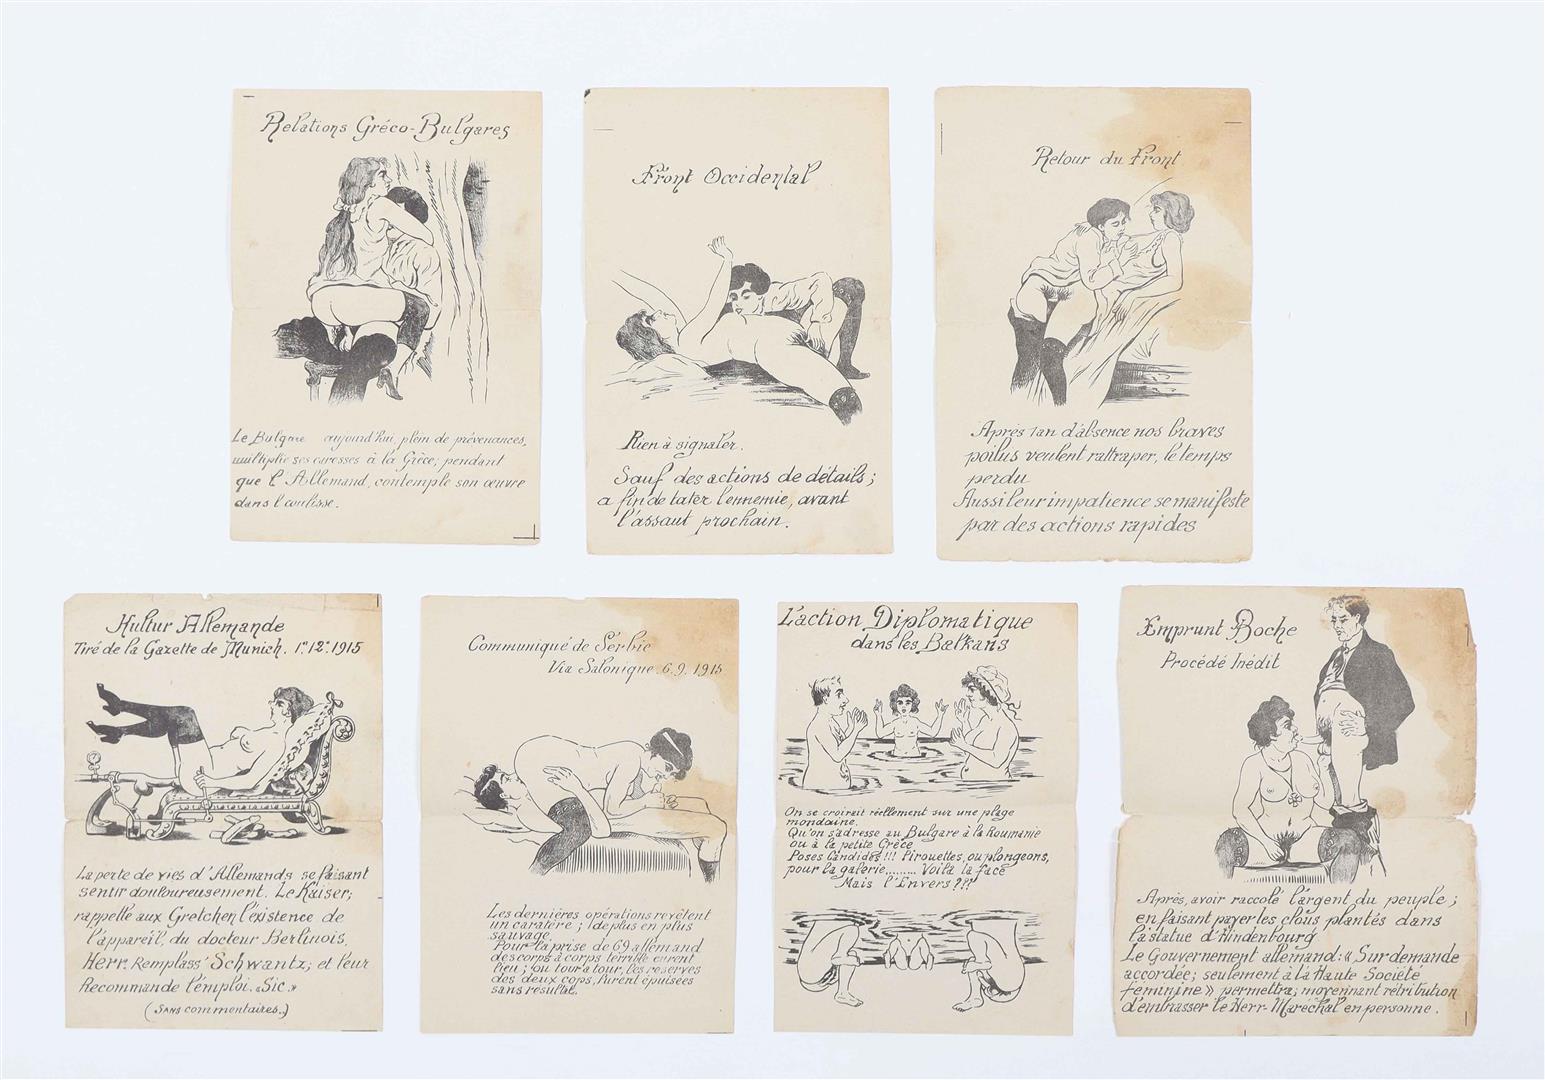 Relations Gréco-Bulgares
Le Bulgare aujourd'hui, plein de prévenances,
multiplie ses caresses à la Grèce; pendant
que l'Allemand, contemple son œuvre
dans l'coulisse.
Front Occidental
Rien à signaler.
Sauf des actions de détails;
a fin de tater l'ennemie, avant
l'assaut prochain.
Retour du Front
Après 1 an d'absence nos braves
poilus veulent rattraper, le temps
perdu
Aussi leur impatience se manifeste
par des actions rapides
Kultur Allemande
Tiré de la Gazette de Munich. 1er 12e 1915
La perte de vies d'Allemands se faisant
sentir douloureusement. Le Kaiser;
rappelle aux Gretchen l'existence de
l'appareil, du docteur Berlinois,
Herr. Remplass' Schwantz; et leur
Recommande l'emploi. «Sic.»
(Sans commentaires.)
Communiqué de Serbie
Via Salonique. 6.9. 1915
Les dernières opérations revêtent
un caratère; 1 de plus en plus
sauvage.
Pour la prise de 69 allemand
des corps à corps terrible eurent
lieu; ou tour a tour, les reserves
des deux cops, furent épuisées
sans résultat.
L'action Diplomatique
dans les Balkans
On se croirait réellement sur une plage
mondaine.
Qu'on s'adresse au Bulgare à la Roumanie
ou à la petite Grèce
Poses Candides!!! Pirouettes, ou plongeons,
pour la galerie......... Voilà la face
Mais l'Envers???
Emprunt Boche
Procédé Inédit
Après, avoir raccolé l'argent du peuple;
en faisant payer les clous plantés dans
la statue d'Hindenbourg
Le Gouvernement allemand: «Sur demande
accordée; seulement à la Haute Société
féminine» permettra; moyennant rétribution
d'embrasser le Herr-Maréchal en personne.